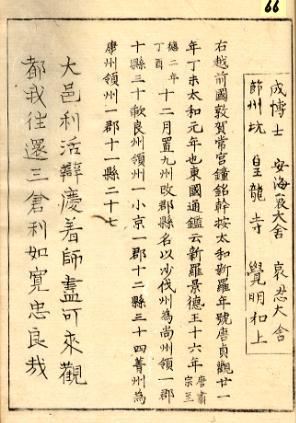 66
成博士　安海哀大舍　哀忍大舍
節州坑　皇龍寺　覺明和上
右越前國敦賀常宮鐘銘幹按太和新羅年號唐貞觀廿一
年丁未太和元年也東國通鑑云新羅景德王十六年唐肅宗至
德二年丁酉十二月置九州改郡縣名以沙伐州為尚州領一郡
十縣三十歃良州領州一小京一郡十二縣三十四菁州為
康州領州一郡十一縣二十七
大邑利活辯慶着師盡可來觀
都我往還三倉利如寬忠良哉